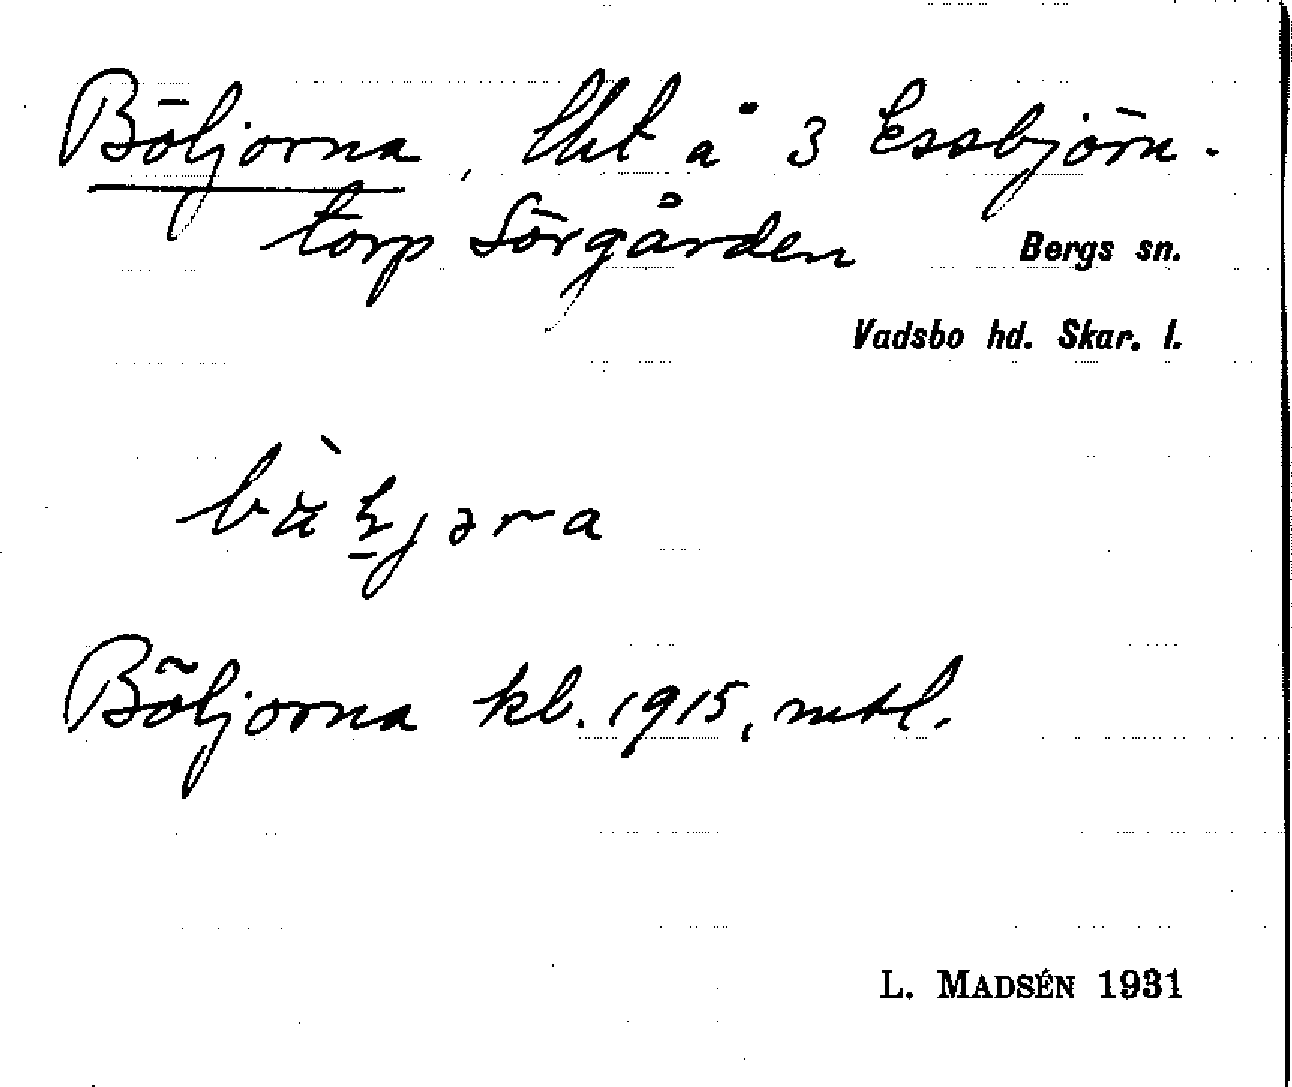 Böljorna, lht å 3 Essbjörn-
torp Sörgården
Bergs sn.
Vadsbo hd. Skar. l.
Böljorna kl. 1915, mtl.
L. MADSÉN 1931